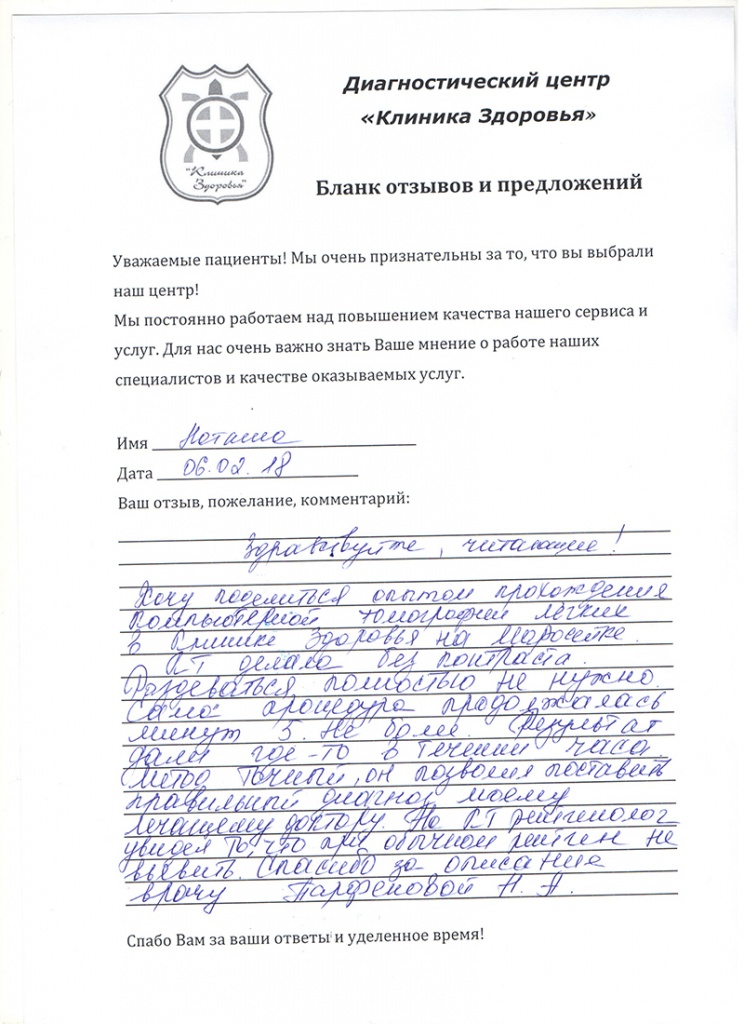 "Клиника
Здоровья"
Диагностический центр
«Клиника Здоровья»
Бланк отзывов и предложений
Уважаемые пациенты! Мы очень признательны за то, что вы выбрали
наш центр!
Мы постоянно работаем над повышением качества нашего сервиса и
услуг. Для нас очень важно знать Ваше мнение о работе наших
специалистов и качестве оказываемых услуг.
Имя Наташа
Дата 06.02.18
Ваш отзыв, пожелание, комментарий:
Здравствуйте, читающие!
Хочу поделиться опытом прохождения
компьютерной томографии легких
в Клинике Здоровья на Маросейке.
КТ делала без контраста.
Раздеваться полностью не нужно.
Сама процедура продолжалась
минут 5. Не более. Результат
дали где-то в течении часа.
Метод точный, он позволил поставить
правильный диагноз моему
лечащему доктору. На КТ рентгенолог
увидел то, что при обычном рентген не
выявить. Спасибо за описание
врачу Парфеновой Н. А.
Спабо Вам за ваши ответы и уделенное время!